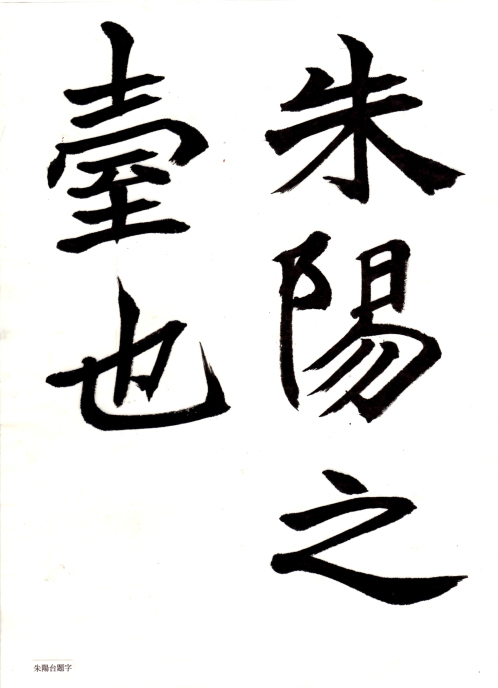 朱陽之
臺也
朱陽台題字